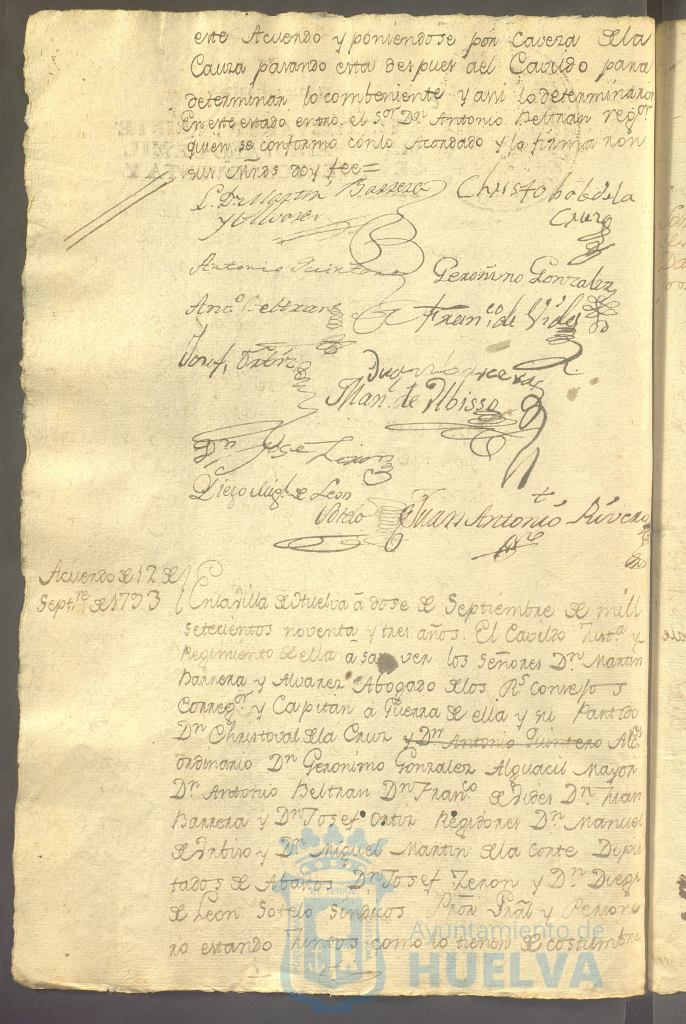 este Acuerdo y poniendose por Cavesa de la
Causa pasando esta despues del Cavildo para
determinar lo combeniente y asi lo determinaron
En este estado entró el Sor. Dn. Antonio Beltran regor.
quien se conformó con lo Acordado y lo firmaron
sus Mrds doy fee=
L. Dn Martin Barrera Christobal de la
y Alvarez Cruz
Antonio Quintero Geronimo Gonzalez
Anto. Beltran Franco. de Vides
Josef Ortiz
Man. de Ubisso
Dn. Jose Zeron
Diego Migl. de Leon
Sotelo Juan Antonio Rivero
Acuerdo de 12 de
Septre. de 1793
En la Villa de Huelva á dose de Septiembre de mill
setecientos noventa y tres años. El Cavildo Justa. y
Regimiento de ella á saver los Señores Dn. Martin
Barrera y Alvarez Abogado de los Rs. Consejos
Corregor. y Capitan á Guerra de ella y su Partido
Dn. Christoval de la Cruz y Dn. Antonio Quintero Alces.
ordinario Dn. Geronimo Gonzalez Alguacil Mayor
Dn. Antonio Beltran Dn. Franco. de Vides Dn. Juan
Barrera y Dn. Josef Ortiz Regidores Dn. Manuel
de Ubiso y Dn. Miguel Martin de la Corte Dipu
tados de Abastos Dn. Josef Zeron y Dn. Diego
de Leon Sotelo Sindicos Pror. Gral. y Persone
ro estando Juntos como lo tienen de costumbre
Ayuntamiento de
HUELVA